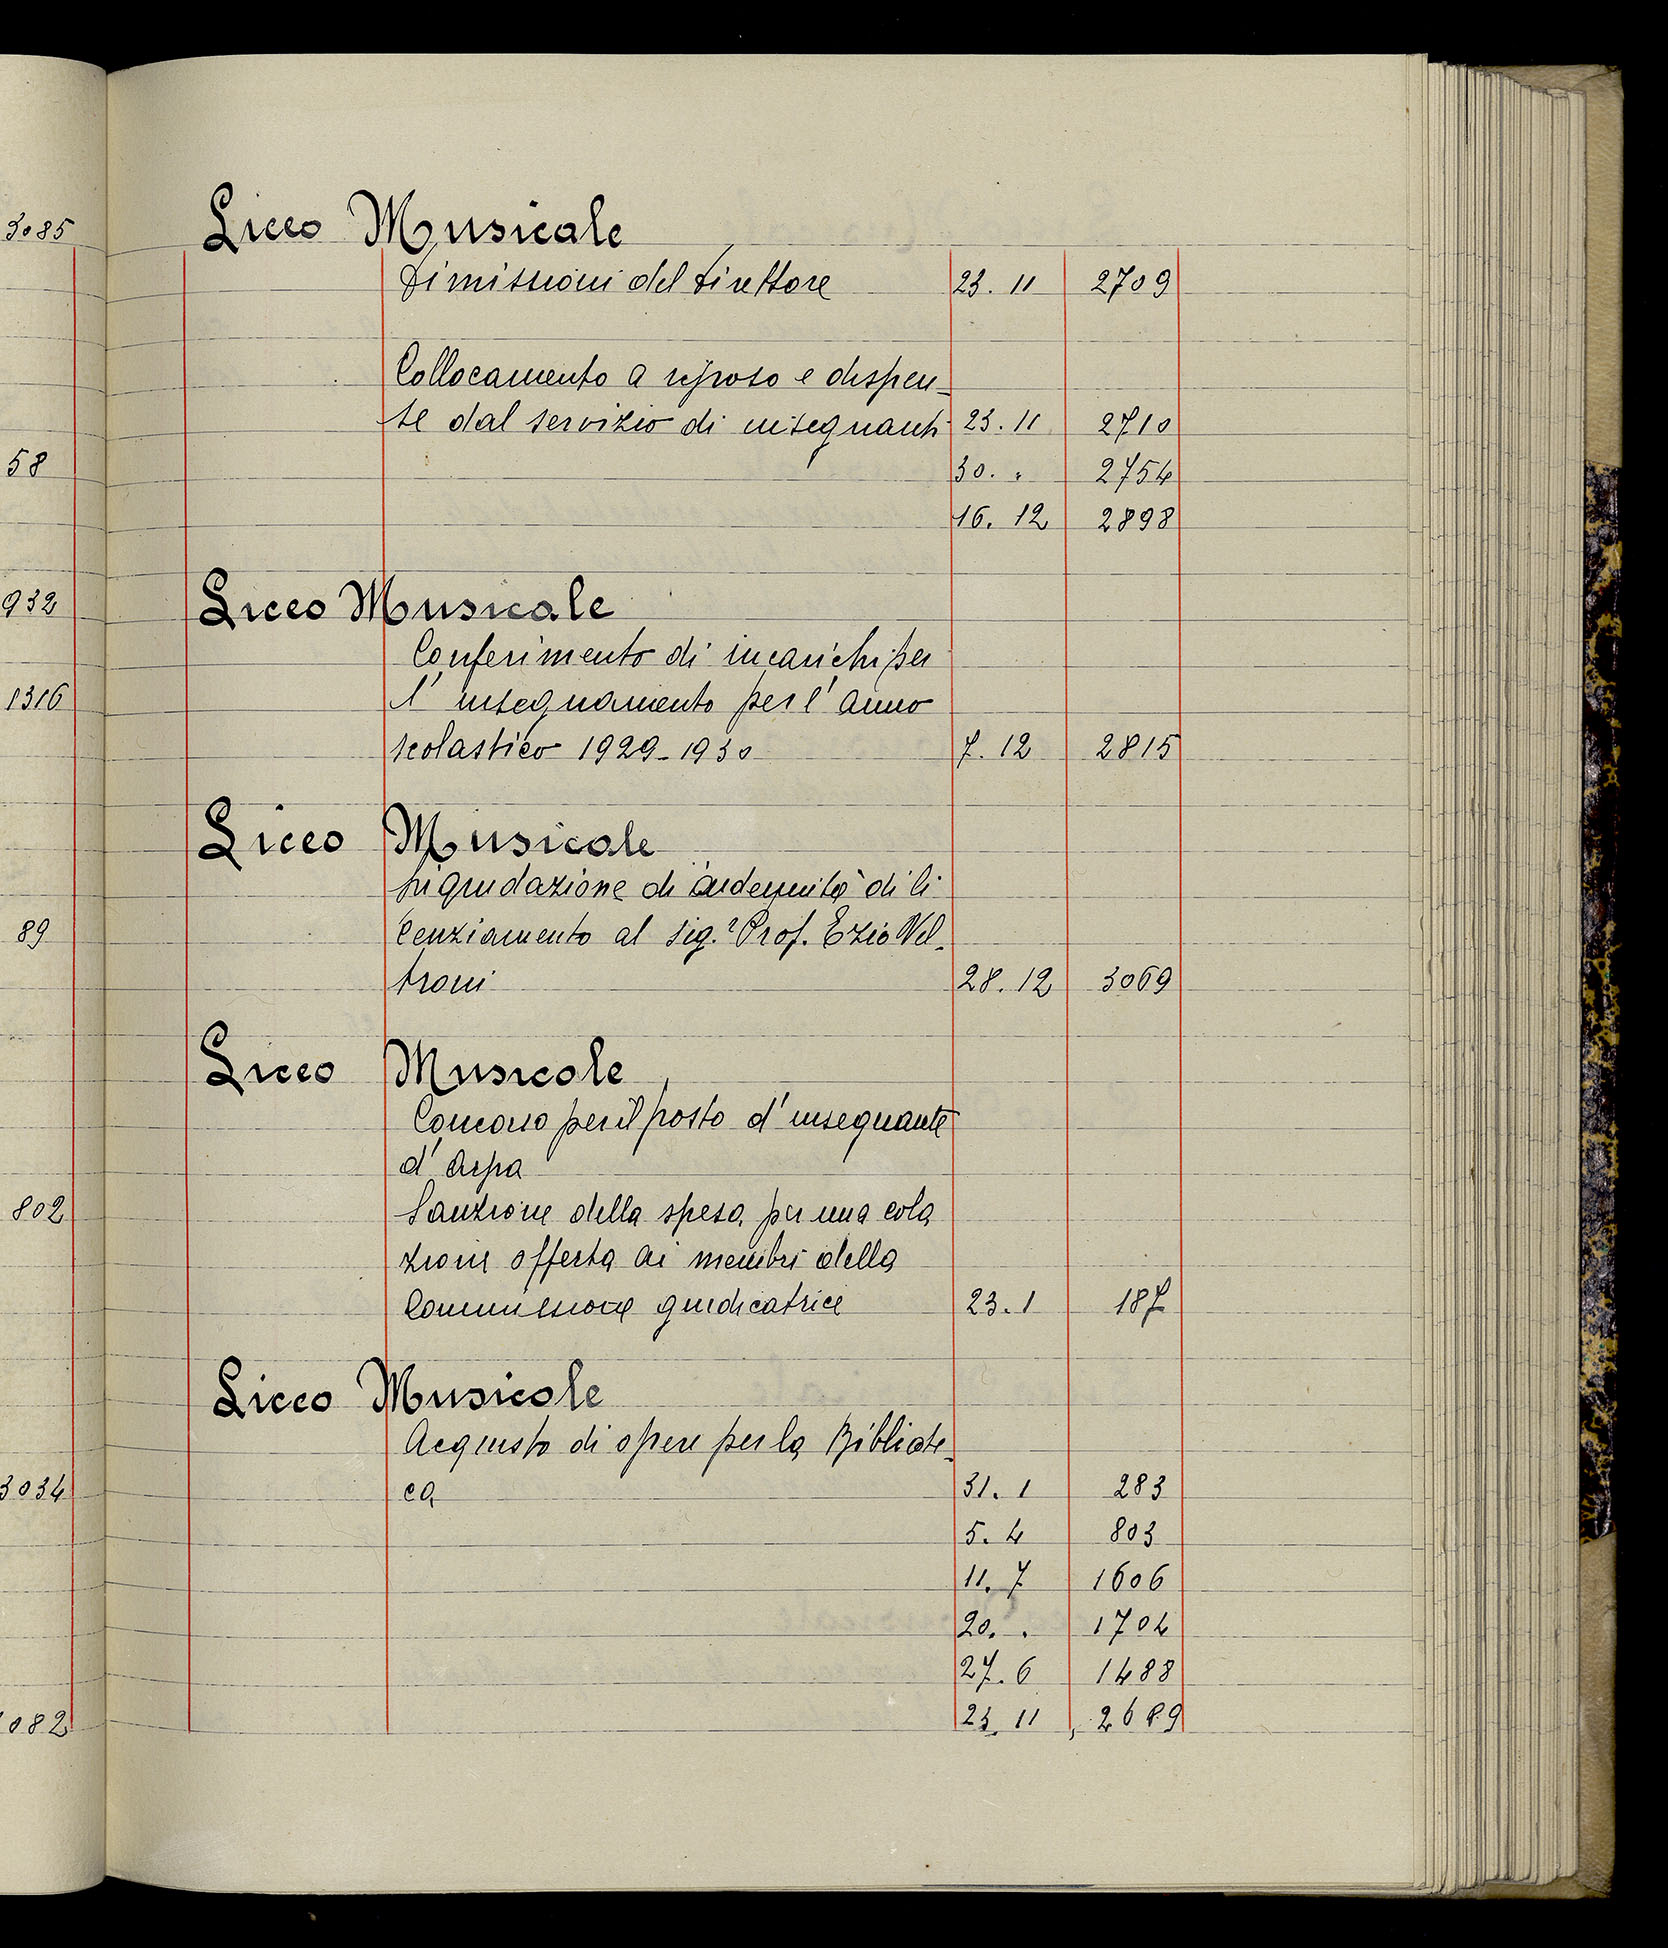 3085
58
932
1316
89
802
3034
082
Liceo Musicale
Dimissioni del Direttore 23. 11 2709
Collocamento a riposo e dispen-
se dal servizio di insegnanti 23. 11 2710
30. " 2754
16. 12 2898
Liceo Musicale
Conferimento di incarichi per
l' insegnamento per l' anno
scolastico 1929-1930 7. 12 2815
Liceo Musicale
Liquidazione di indennità di li
cenziamento al sig.r Prof. Ezio Vel-
troni 28. 12 3069
Liceo Musicale
Concorso per il posto d' insegnante
d' Arpa
Sanzione della spesa per una cola
zione offerta ai membri della
Commissione giudicatrice 23. 1 187
Liceo Musicale
Acquisto di opere per la Bibliote-
ca 31. 1 283
5. 4 803
11. 7 1606
20. " 1704
27. 6 1488
23. 11 2689